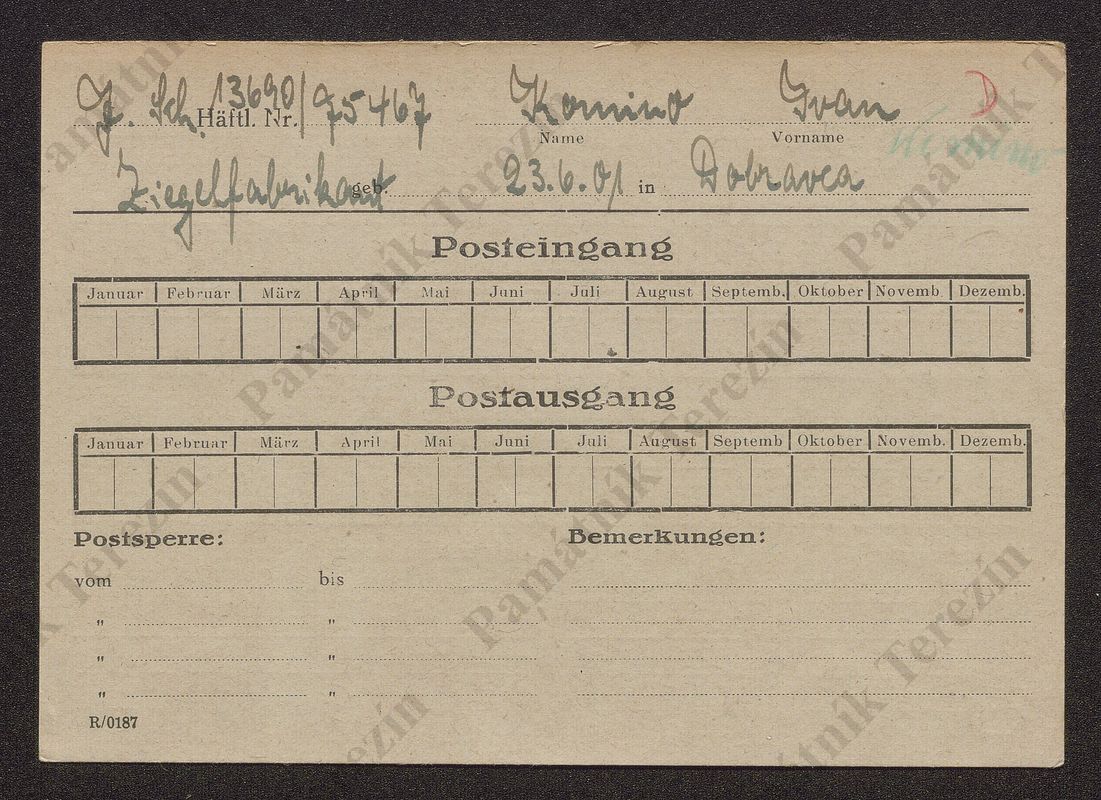 J. Sch. 13690/75467 Komino Ivan D
Häftl. Nr. Name Vorname
Komino
Ziegelfabrikant geb. 23.6.01 in Dobravca
Posteingang
Januar Februar März April Mai Juni Juli August Septemb. Oktober Novemb. Dezemb.
Postausgang
Januar Februar März April Mai Juni Juli August Septemb Oktober Novemb. Dezemb.
Postsperre: Bemerkungen:
vom bis
" "
" "
" "
R/0187
Památník Terezín